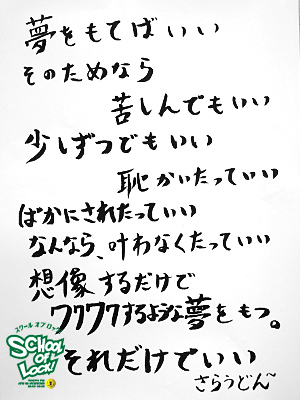 夢をもてばいい
そのためなら
苦しんでもいい
少しずつでもいい
恥かいたっていい
ばかにされたっていい
なんなら、叶わなくたっていい
想像するだけで
ワクワクするような夢をもつ。
スクール オブ ロック
SCHOOL
OF
LOCK!
それだけでいい
さらうどん~